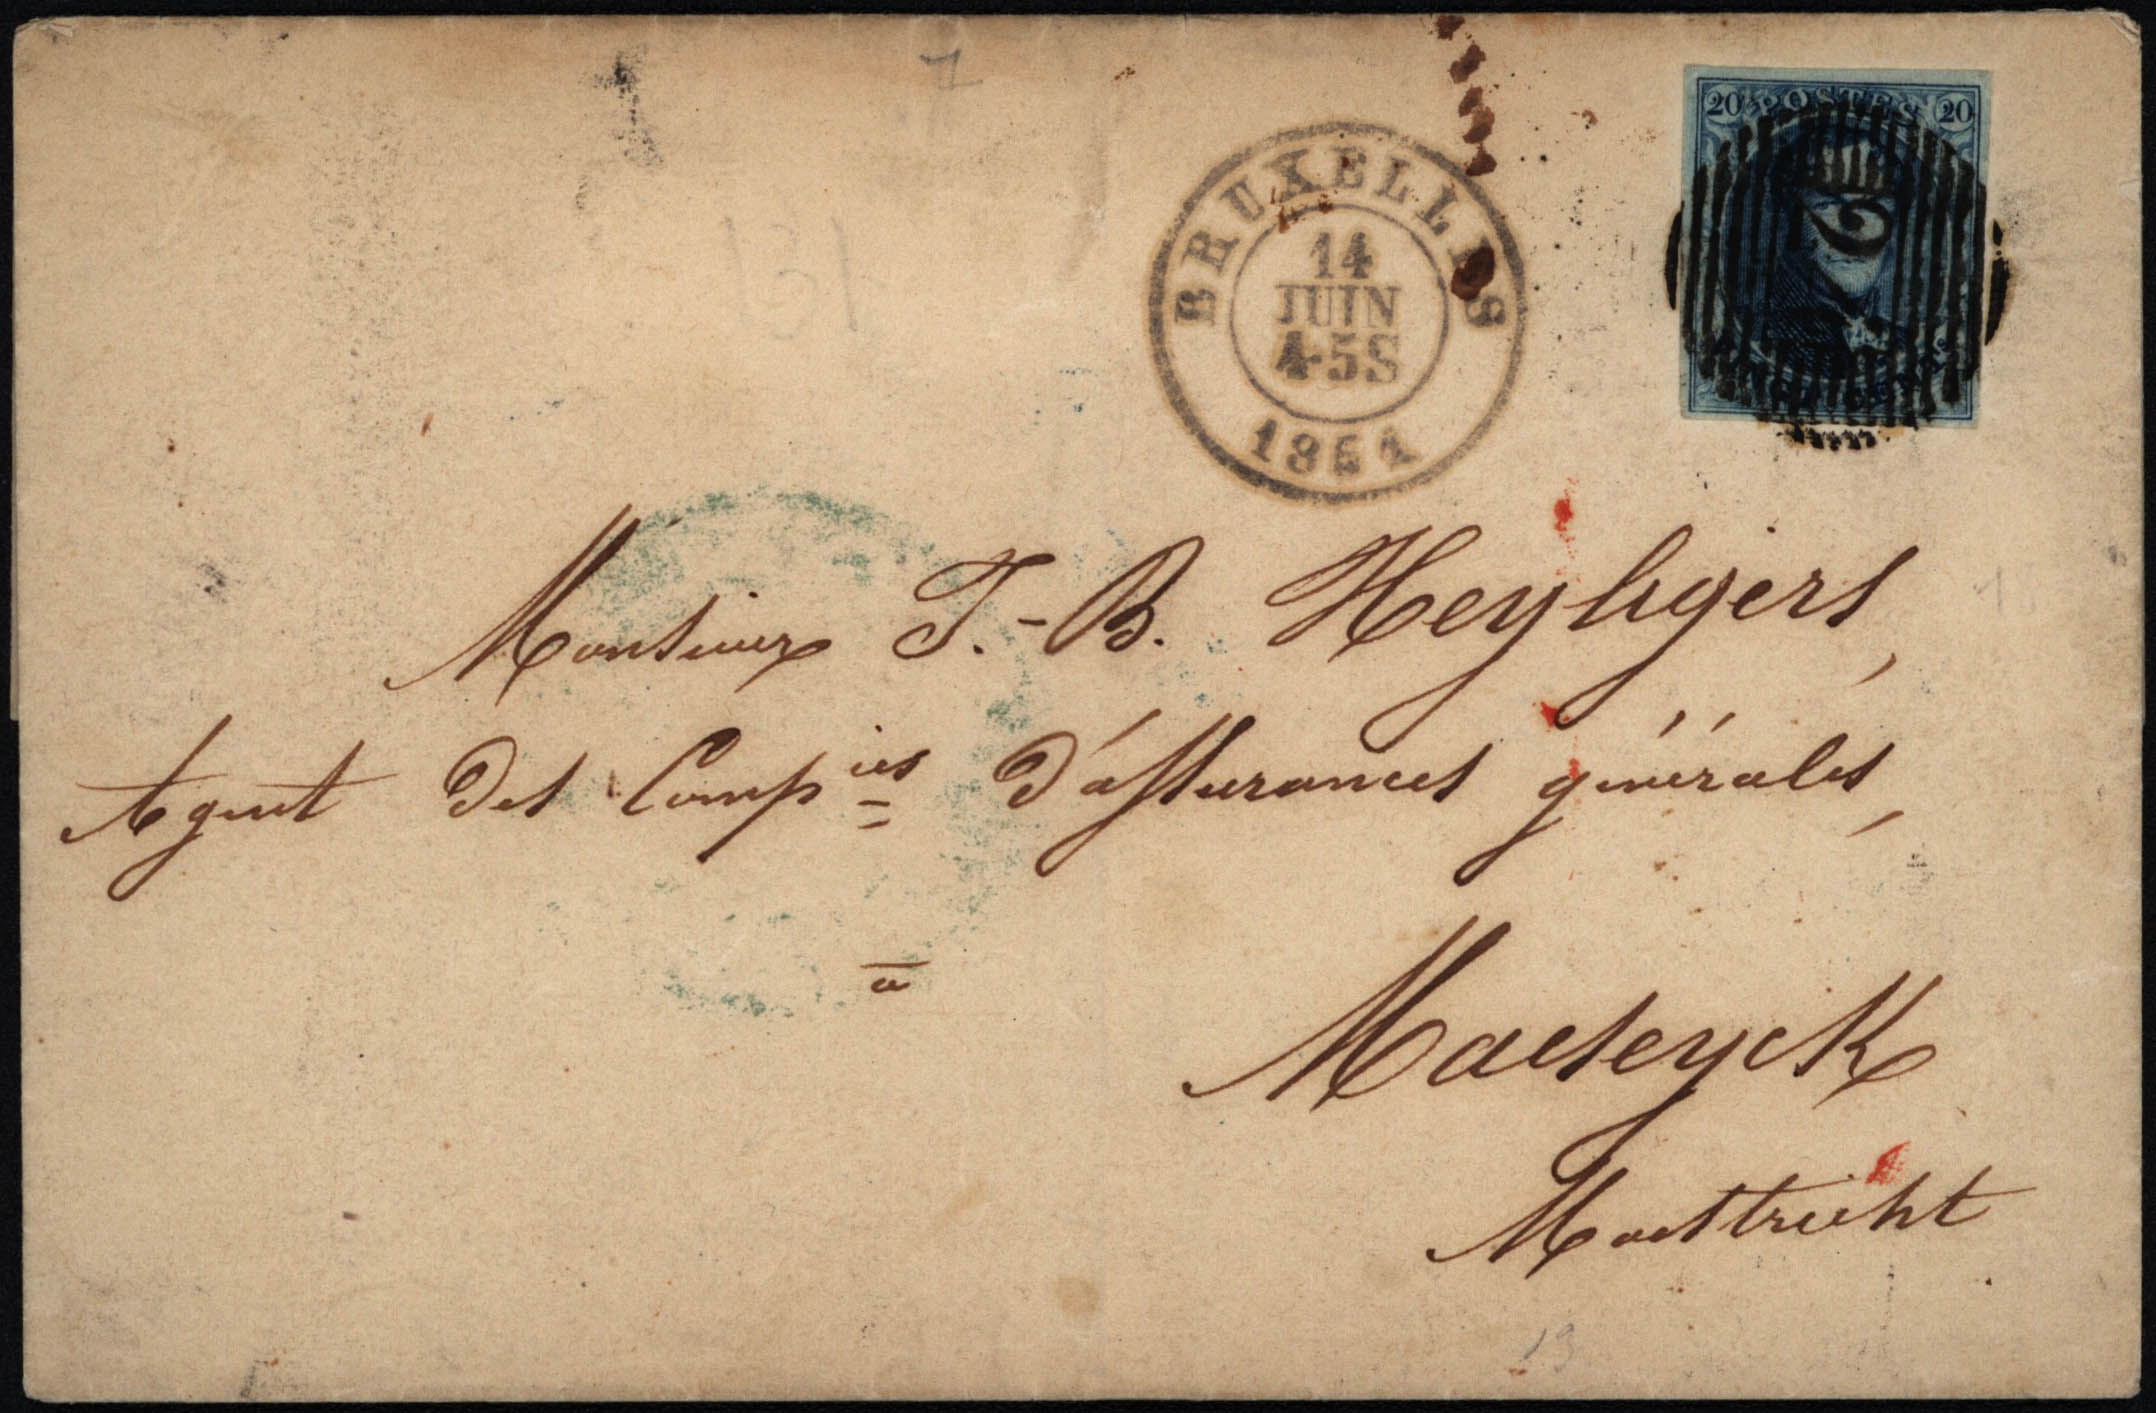 20 POSTES 20
BRUXELLES
14
JUIN
4-5S
1851
Monsieur J.-B. Heyligers,
Agent des Comp.ies d'assurances générales,
à
Maeseyck
Maestricht
19